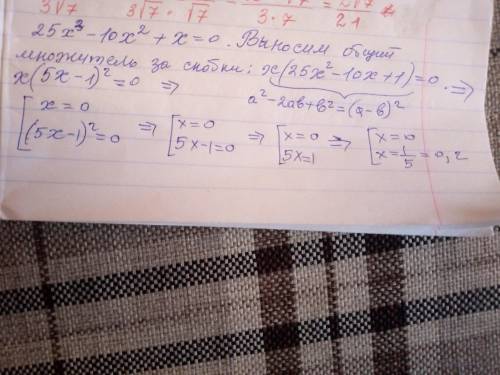 3√7 3√7 · √7 3 · 7 21
25x³ - 10x² + x = 0. Выносим общий
множитель за скобки: x(25x² - 10x + 1) = 0. ⇒
x(5x - 1)² = 0 ⇒ a² - 2ab + b² = (a - b)²
[ x = 0 ⇒ [ x = 0 ⇒ [ x = 0 ⇒ [ x = 0
(5x - 1)² = 0 5x - 1 = 0 5x = 1 x = 1/5 = 0,2